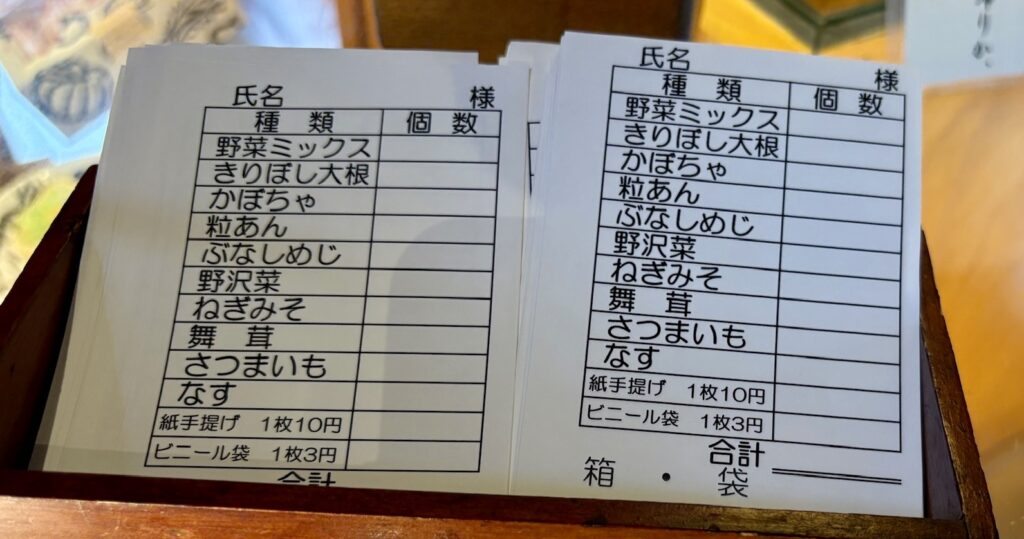 氏名 様
種 類 個 数
野菜ミックス
きりぼし大根
かぼちゃ
粒あん
ぶなしめじ
野沢菜
ねぎみそ
舞 茸
さつまいも
なす
紙手提げ 1枚10円
ビニール袋 1枚3円
合計
氏名 様
種 類 個 数
野菜ミックス
きりぼし大根
かぼちゃ
粒あん
ぶなしめじ
野沢菜
ねぎみそ
舞 茸
さつまいも
なす
紙手提げ 1枚10円
ビニール袋 1枚3円
合計
箱 ・ 袋